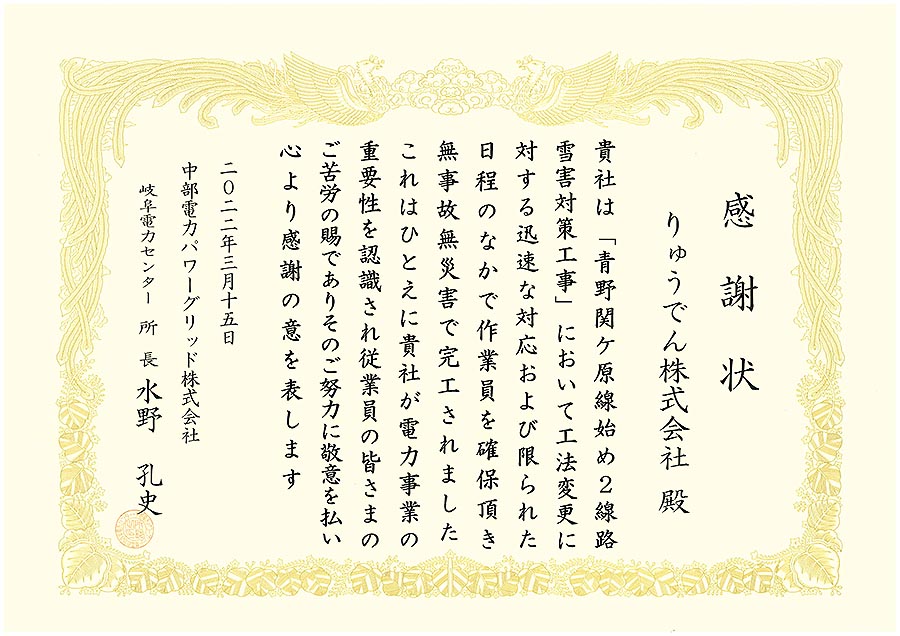 感謝状
りゅうでん株式会社 殿
貴社は「青野関ケ原線始め2線路
雪害対策工事」において工法変更に
対する迅速な対応および限られた
日程のなかで作業員を確保頂き
無事故無災害で完工されました
これはひとえに貴社が電力事業の
重要性を認識され従業員の皆さまの
ご苦労の賜でありそのご努力に敬意を払い
心より感謝の意を表します
二〇二二年三月十五日
中部電力パワーグリッド株式会社
岐阜電力センター 所長 水野 孔史